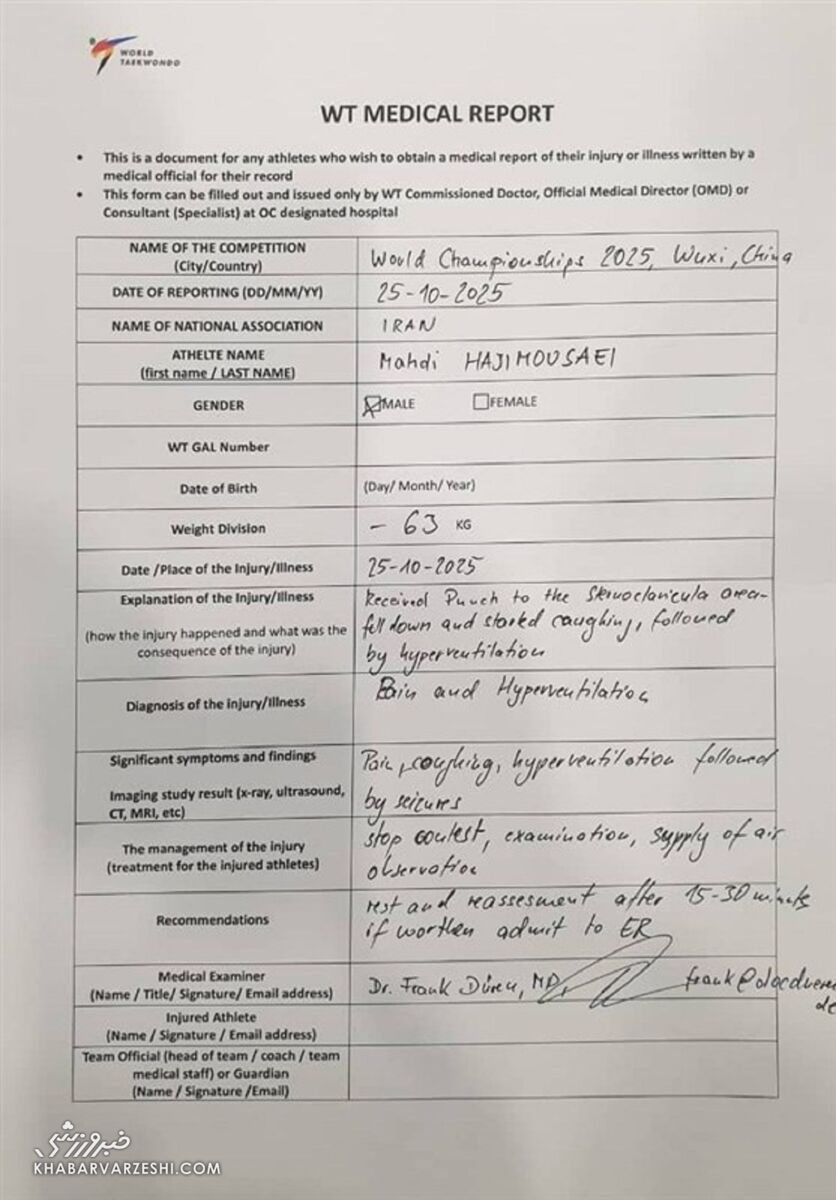 WORLD
TAEKWONDO
WT MEDICAL REPORT
• This is a document for any athletes who wish to obtain a medical report of their injury or illness written by a
medical official for their record
• This form can be filled out and issued only by WT Commissioned Doctor, Official Medical Director (OMD) or
Consultant (Specialist) at OC designated hospital
NAME OF THE COMPETITION
(City/Country)
World Championships 2025, Wuxi, China
DATE OF REPORTING (DD/MM/YY)
25-10-2025
NAME OF NATIONAL ASSOCIATION
IRAN
ATHELTE NAME
(first name / LAST NAME)
Mahdi HAJIMOUSAEI
GENDER
MALE FEMALE
WT GAL Number
Date of Birth
(Day/ Month/ Year)
Weight Division
- 63 KG
Date /Place of the Injury/Illness
25-10-2025
Explanation of the Injury/Illness
(how the injury happened and what was the
consequence of the injury)
Received Punch to the Sternoclavicula area-
fell down and started caughing, followed
by hyperventilation
Diagnosis of the injury/illness
Pain and Hyperventilation
Significant symptoms and findings
Imaging study result (x-ray, ultrasound,
CT, MRI, etc)
Pain, coughing, hyperventilation followed
by seizures
The management of the injury
(treatment for the injured athletes)
stop contest, examination, supply of air
observation
Recommendations
rest and reassesment after 15-30 minutes
if worthen admit to ER
Medical Examiner
(Name / Title/ Signature/ Email address)
Dr. Frank Düren, MD,
Injured Athlete
(Name / Signature / Email address)
Team Official (head of team / coach / team
medical staff) or Guardian
(Name / Signature /Email)
خبرورزشی
KHABARVARZESHI.COM